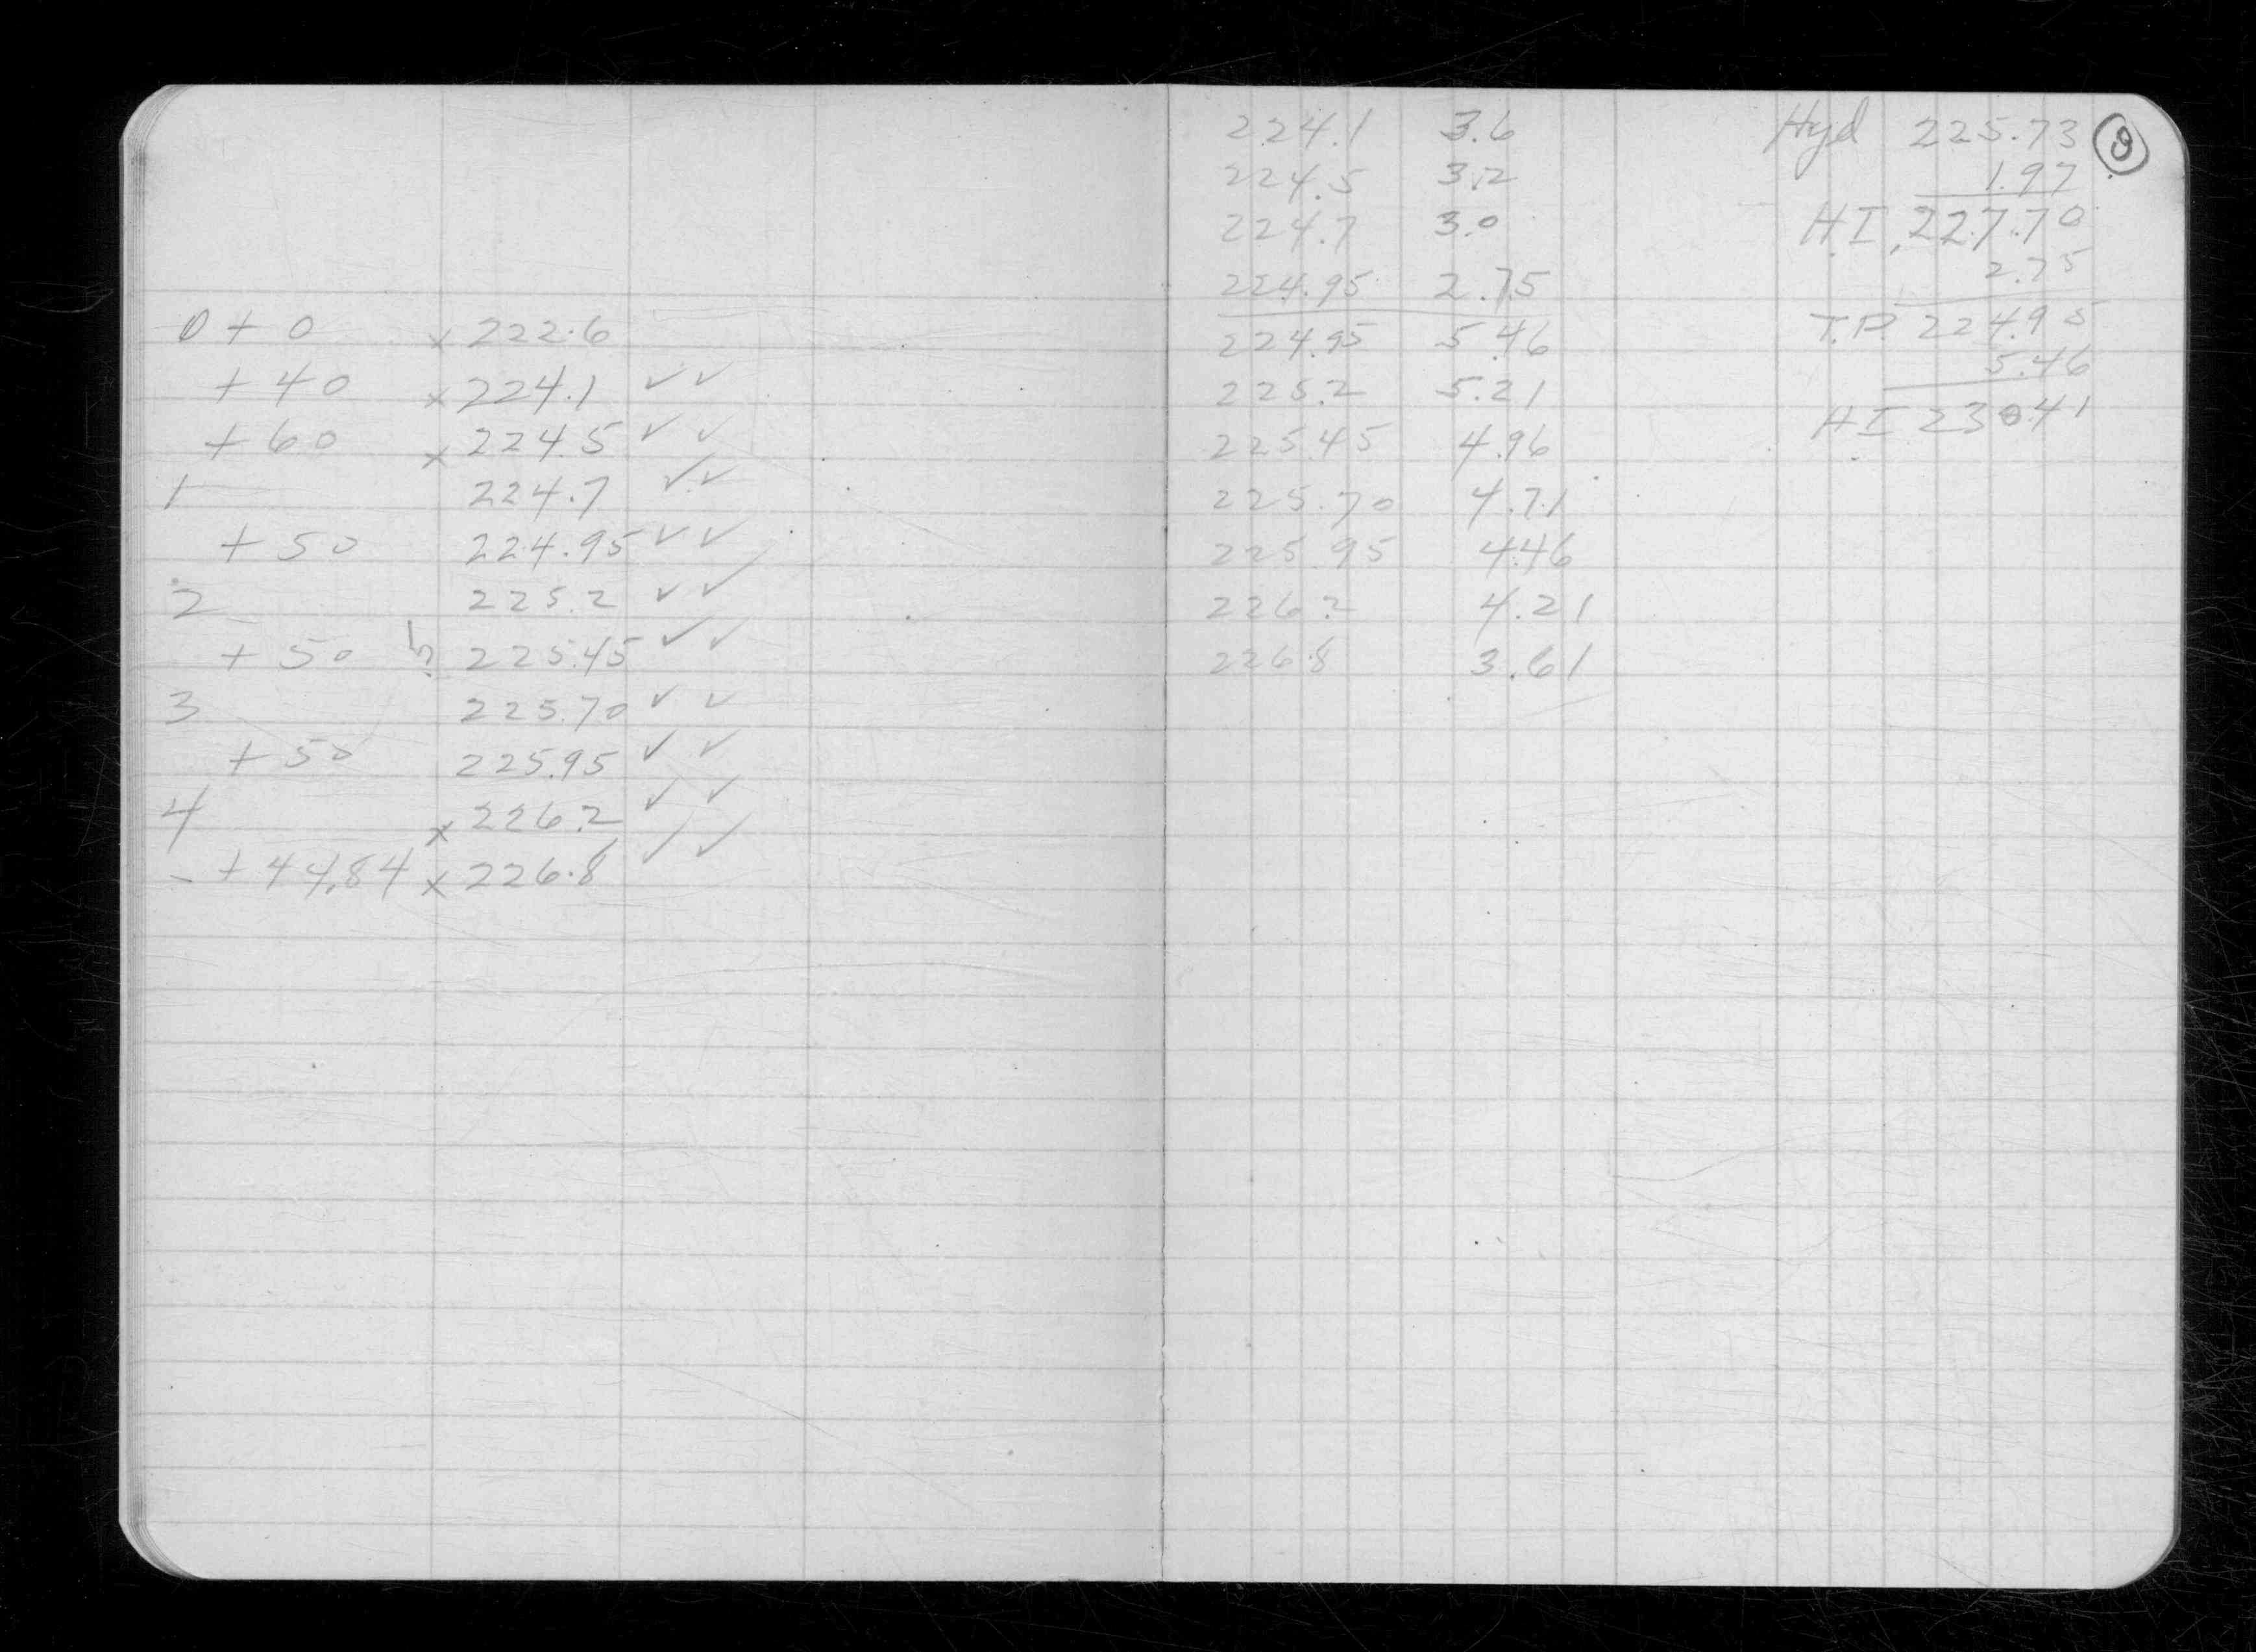 0 + 0 x 222.6
+ 40 x 224.1 ✓ ✓
+ 60 x 224.5 ✓ ✓
1 224.7 ✓ ✓
+ 50 224.95 ✓ ✓
2 225.2 ✓ ✓
+ 50 225.45 ✓ ✓
3 225.70 ✓ ✓
+ 50 225.95 ✓ ✓
4 x 226.2 ✓ ✓
+ 44.84 x 226.8 ✓ ✓
224.1 3.6
224.5 3.2
224.7 3.0
224.95 2.75
224.95 5.46
225.2 5.21
225.45 4.96
225.70 4.71
225.95 4.46
226.2 4.21
226.8 3.61
Hyd 225.73
1.97
HI 227.70
2.75
T.P. 224.95
5.46
HI 230.41